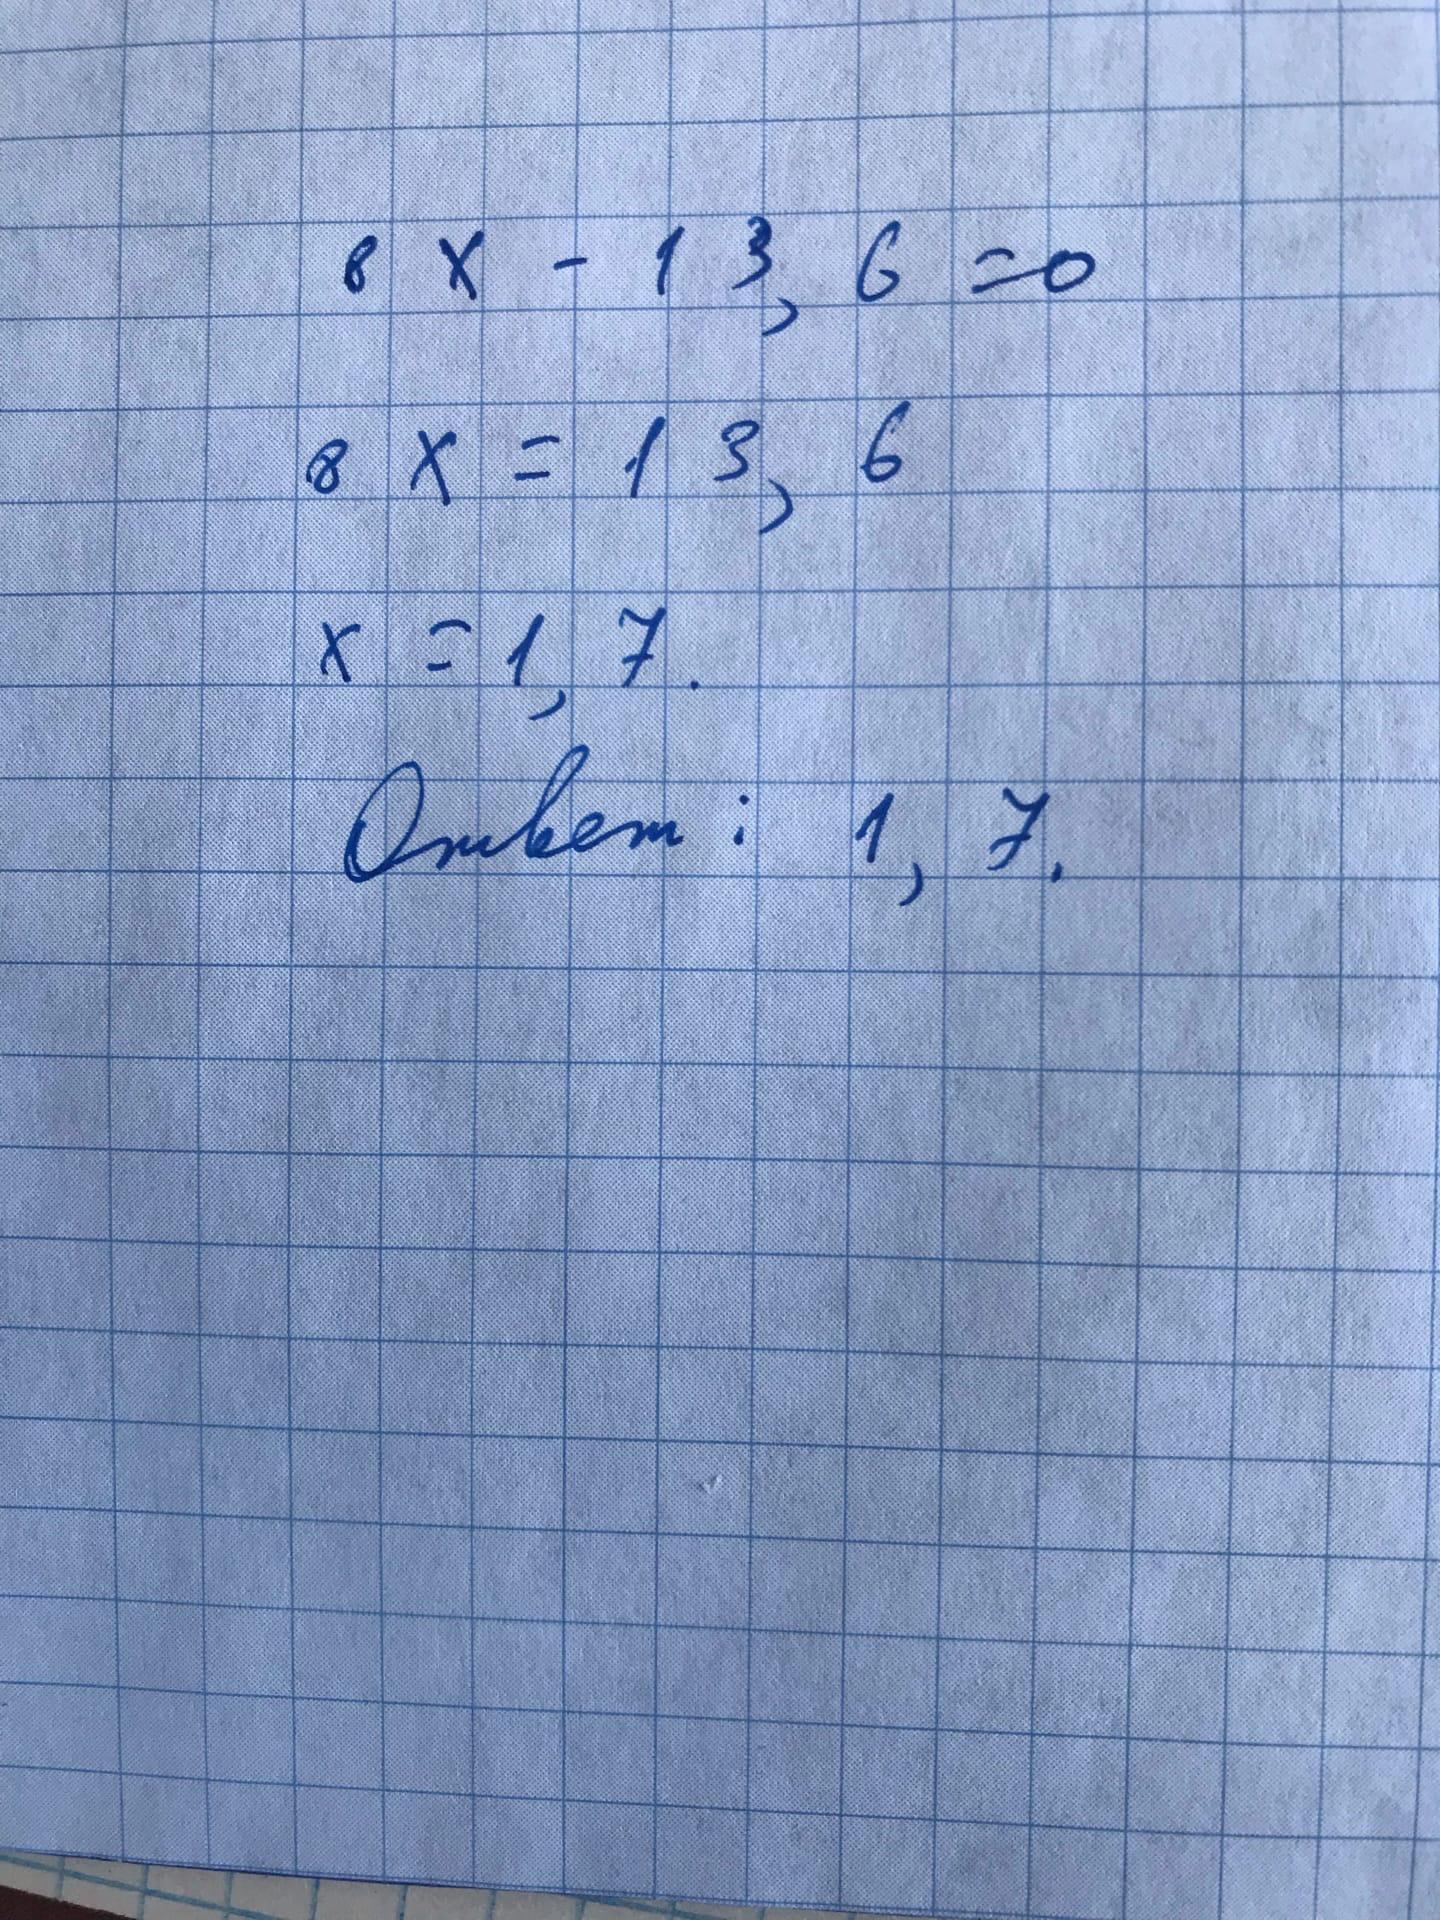 8x - 13,6 = 0
8x = 13,6
x = 1,7.
Ответ: 1,7.